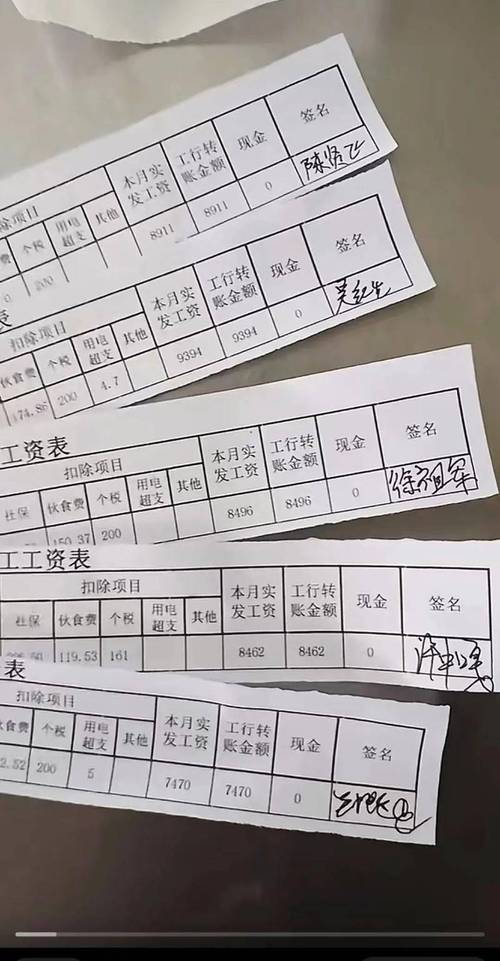 除项目 本月实发工资 工行转账金额 现金 签名
费 个税 用电超支 其他
0 200 8911 8911 0 陈贤飞
表
扣除项目 本月实发工资 工行转账金额 现金 签名
伙食费 个税 用电超支 其他
174.86 200 4.7 9394 9394 0
工资表
扣除项目 本月实发工资 工行转账金额 现金 签名
社保 伙食费 个税 用电超支 其他
150.37 200 8496 8496 0
工工资表
扣除项目 本月实发工资 工行转账金额 现金 签名
社保 伙食费 个税 用电超支 其他
119.53 161 8462 8462 0
表
扣除项目 本月实发工资 工行转账金额 现金 签名
伙食费 个税 用电超支 其他
2.52 200 5 7470 7470 0